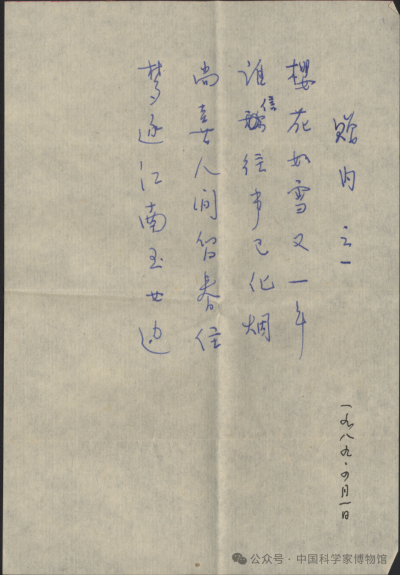 赠内 之一
樱花如雪又一年
谁信往事已化烟
尚喜人间留春住
梦逐江南玉女边
一九八九·四月一日
公众号·中国科学家博物馆